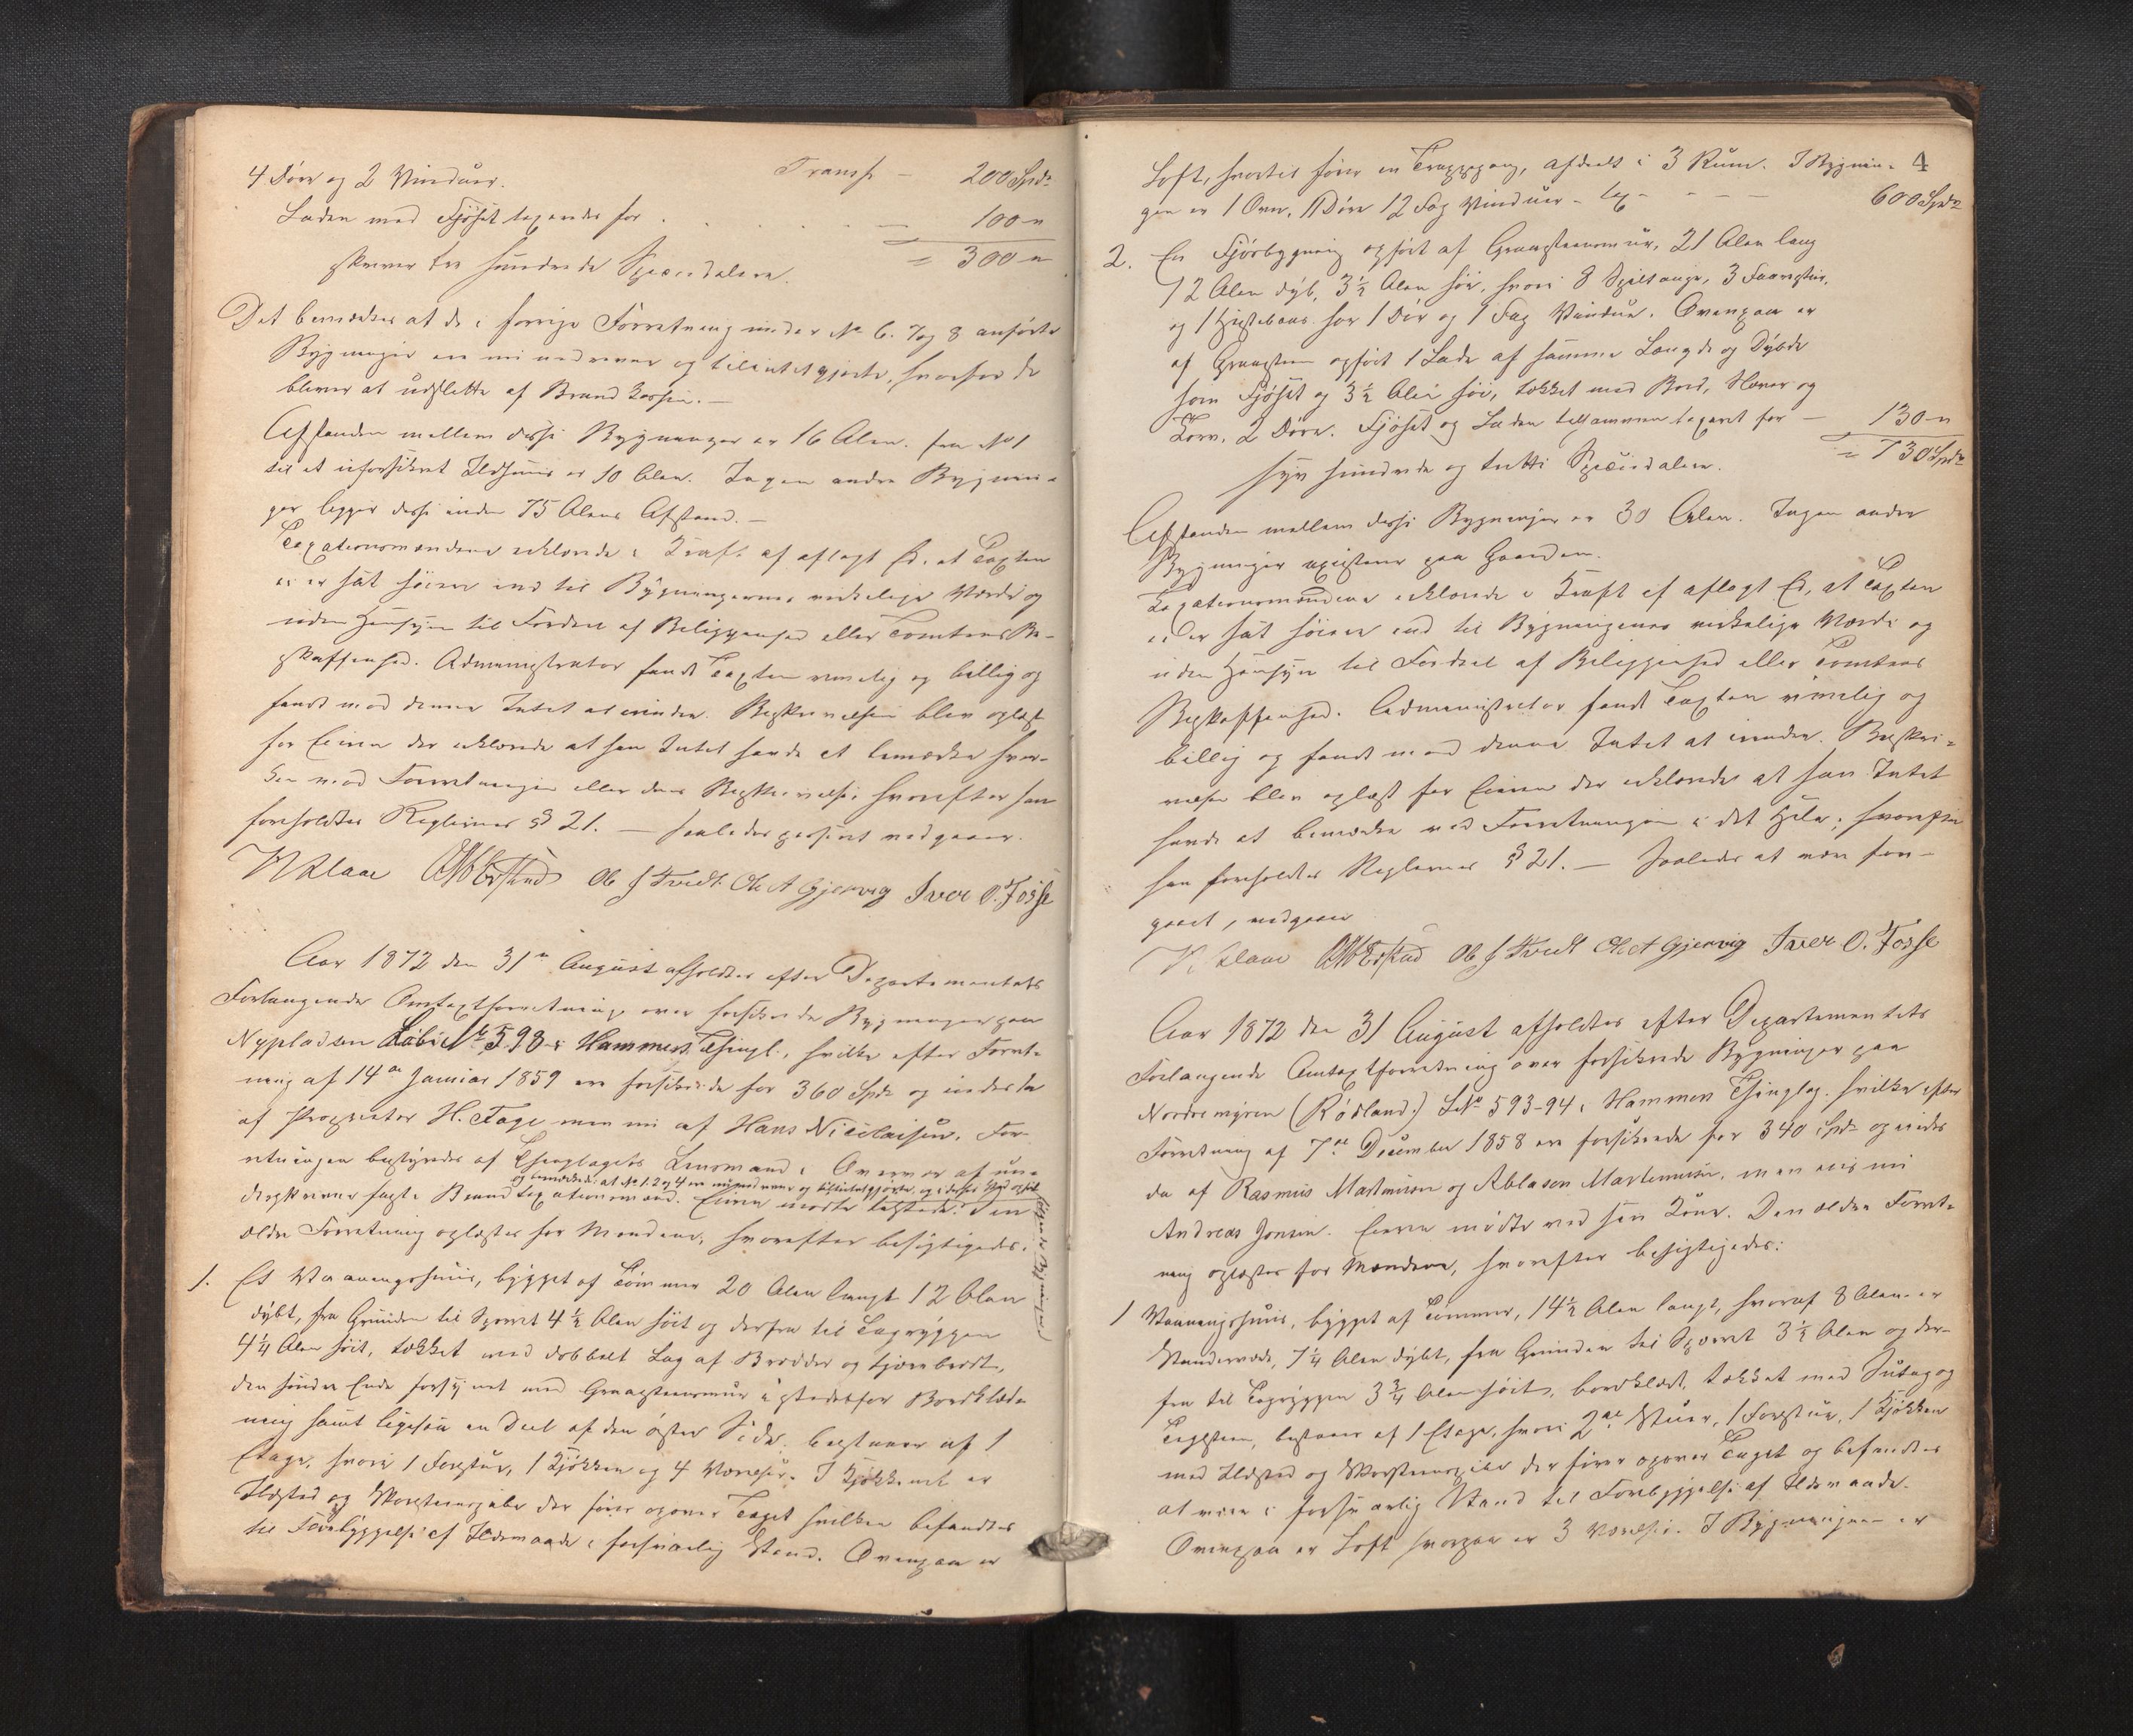 4 Döre og 2 Vinduer. Transp. — 200 Spd.
Laden med Fjöset taxeredes for . . . — 100 "
skriver tre hundrede Speciedalere. = 300 "
Det bemærkes at de i forrige Forretning under No 6. 7 og 8 anførte
Bygninger ere nu nedrevne og tilintetgjorte, hvorfor de
bliver at udslette af Brandkassen. —
Afstanden mellem disse Bygninger er 16 Alen. fra No 1
til et uforsikret Ildhuus er 10 Alen. Ingen andre Bygnin-
ger ligger disse inden 75 Alens Afstand. —
Taxationsmændene erklærede i Kraft af aflagt Ed, at Taxten
ei er sat høiere end til Bygningernes virkelige Værdi og
uden Hensyn til Fordeel af Beliggenhed eller Tomtens Be-
skaffenhed. Administrator fandt Taxten rimelig og billig og
fandt mod denne Intet at erindre. Beskrivelsen blev oplæst
for Eieren der erklærede at han Intet havde at bemærke hver-
ken mod Forretningen eller dens Beskrivelse, hvorefter han
foreholdtes Reglernes § 21. — Saaledes passeret vedgaaer.
Ole J Tvedt Ole A Gjervig Iver O. Fosse
Aar 1872 den 31te August afholdtes efter Departementets
Forlangende Omtaxtforretning over forsikrede Bygninger paa
Nypladsen Löbe No 598 i Hammers Thingl., hvilke efter Forret-
ning af 14de Januar 1859 ere forsikrede for 360 Spd. og eiedes da
af Proprietær H. Tage men nu af Hans Nicolaisen. For-
retningen bestyredes af Thinglagets Lensmand i Overvær af un-
og bemærkedes at No 1. 2 og 4 er nu nedrevne og tilintetgjorte, og i deres Sted opført
derskrevne faste Brandtaxationsmænd. Eieren mødte tilstede. Den
følgende Bygninger
ældre Forretning oplæstes for Mændene, hvorefter besigtigedes:
1. Et Vaaningshuus, bygget af Tømmer 20 Alen langt 12 Alen
dybt, fra Grunden til Sparret 4½ Alen høit og derfra til Tagryggen
4¼ Alen høit, tækket med dobbelt Lag af Brædder og tjærebredt,
den søndre Ende forsynet med Graasteensmuur istedetfor Bordklæd-
ning samt ligesaa en Deel af den østre Side, bestaaer af 1
Etage, hvori 1 Forstue, 1 Kjøkken og 4 Værelser. I Kjøkkenet er
Ildsted og Skorsteenspibe der fører op over Taget hvilken befandtes
til Forebyggelse af Ildsvaade i forsvarlig Stand. Ovenpaa er
4
Loft, hvortil fører en Trappegang, afdeelt i 3 Rum. I Bygnin-
gen er 1 Ovn, 11 Döre 12 Fag Vinduer - tax - — — 600 Spd.
2. En Fjösbygning opført af Graasteensmuur, 21 Alen lang
12 Alen dyb, 3½ Alen høi, hvori 8 Spiltauge, 3 Faarestier,
og 1 Hestebaas har 1 Dör og 1 Fag Vindue. Ovenpaa er
af Graasteen opført 1 Lade af samme Længde og Dybde
som Fjöset og 3½ Alen høi, tækket med Bord, Næver og
Torv, 2 Döre. Fjöset og Laden tilsammen taxeret for — 130 "
syv hundrede og tretti Speciedalere. = 730 Spd.
Afstanden mellem disse Bygninger er 30 Alen. Ingen andre
Bygninger existerer paa Gaarden.
Taxationsmændene erklærede i Kraft af aflagt Ed, at Taxten
ei er sat høiere end til Bygningernes virkelige Værdi og
uden Hensyn til Fordeel af Beliggenhed eller Tomtens
Beskaffenhed. Administrator fandt Taxten rimelig og
billig og fandt mod denne Intet at erindre. Beskri-
velsen blev oplæst for Eieren der erklærede at han Intet
havde at bemærke ved Forretningen i det Hele, hvorefter
han foreholdtes Reglernes § 21. — Saaledes at være fore-
gaaet, vedgaaer
Ole J Tvedt Ole A Gjervig Iver O. Fosse
Aar 1872 den 31 August afholdtes efter Departementets
Forlangende Omtaxtforretning over forsikrede Bygninger paa
Nordre myren (Rödland) LNo 593-94 i Hammers Thinglag. hvilke efter
Forretning af 7de December 1858 ere forsikrede for 340 Spd. og eiedes
da af Rasmus Martinusen og Ablason Martinusen, men eies nu
Andreas Jonsen. Eieren mødte ved sin Kone. Den ældre Forret-
ning oplæstes for Mændene, hvorefter besigtigedes:
1 Vaaningshuus, bygget af Tømmer, 14½ Alen langt, hvoraf 8 Alen er
Standerværk, 7¼ Alen dybt, fra Grunden til Sparret 3½ Alen og der-
fra til Tagryggen 3¾ Alen høit, bordklædt, tækket med Sutag og
Tagsteen, bestaaer af 1 Etage, hvori 2de Stuer, 1 Forstue, 1 Kjøkken
med Ildsted og Skorsteenspibe der fører op over Taget og befandtes
at være i forsvarlig Stand til Forebyggelse af Ildsvaade.
Ovenpaa er Loft hvorpaa er 3 Værelser. I Bygningen er